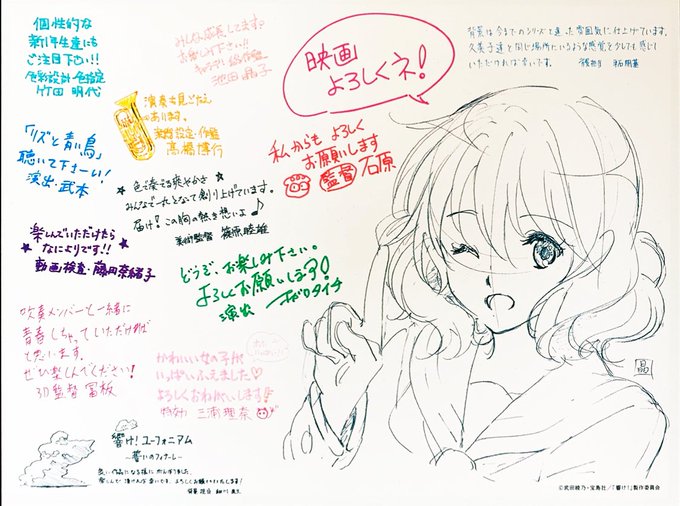 個性的な
新1年生達にも
ご注目下さい!!
色彩設計・色指定
竹田 明代
みんな成長してます。
お楽しみ下さい!!
キャラデザ・総作監
池田 晶子
映画
よろしくネ!
背景は今までのシリーズと違った雰囲気に仕上げています。
久美子達と同じ場所にいるような感覚を少しでも感じて
いただければ幸いです。
演奏も見ごたえ
あります。
楽器設定・作監
高橋博行
私からも よろしく
お願いします
監督 石原
「リズと青い鳥」
聴いて下さーい!
演出・武本
色で奏でる爽やかさ
みんなで一丸となって創り上げています。
届け!この胸の熱き想いよ♪
美術監督 篠原睦雄
楽しんでいただけたら
なによりです!!
動画検査・藤田奈緒子
どうぞ、お楽しみ下さい。
よろしくお願いします!
演出
吹奏メンバーと一緒に
青春しちゃっていただければ
と思います。
ぜひ楽しんでください!
3D監督 冨板
かわいい女の子が
いっぱいふえました♡
よろしくおねがいします!
特効 三浦理奈
晶
響け!ユーフォニアム
〜誓いのフィナーレ〜
良い作品になる様にがんばりました。
楽しんで頂ければ幸いです。よろしくお願いいたします!
©武田綾乃・宝島社/「響け!」製作委員会